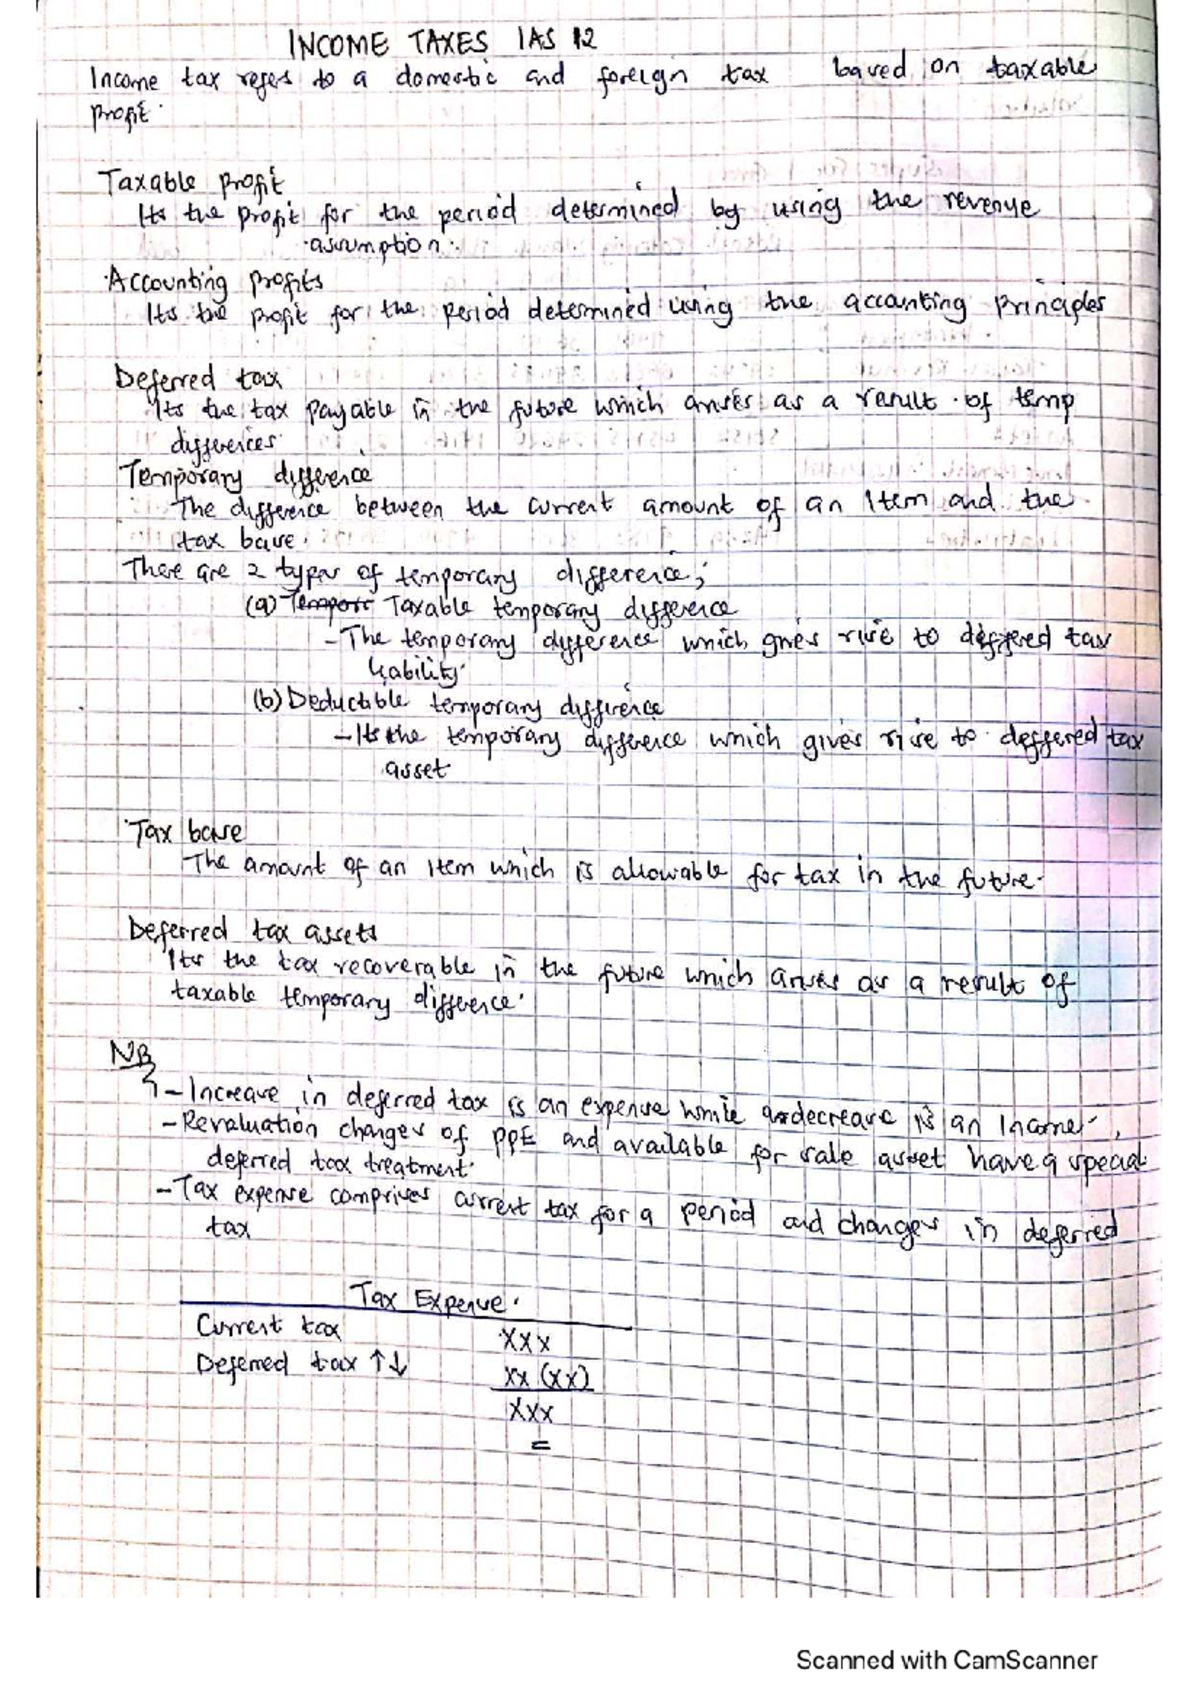 INCOME TAXES IAS 12
Income tax refers to a domestic and foreign tax based on taxable
profit.
Taxable profit
Its the profit for the period determined by using the revenue
assumption.
Accounting profits
Its the profit for the period determined using the accounting principles
Deferred tax
Its the tax payable in the future which arises as a result of temp
differences
Temporary difference
The difference between the current amount of an item and the
tax base.
There are 2 types of temporary difference;
(a) Tempora Taxable temporary difference
- The temporary difference which gives rise to differed tax
liability.
(b) Deductible temporary difference
- Its the temporary difference which gives rise to deffered tax
asset
Tax base
The amount of an item which is allowable for tax in the future.
Deferred tax assets
Its the tax recoverable in the future which arises as a result of
taxable temporary difference.
NB
- Increase in deferred tax is an expense while a decrease is an income.
- Revaluation changes of PPE and available for sale asset have a special
deferred tax treatment.
- Tax expense comprises current tax for a period and changes in deferred
tax
Tax Expense.
Current tax xxx
Deferred tax ↑↓ xx (xx)
xxx
=
Scanned with CamScanner